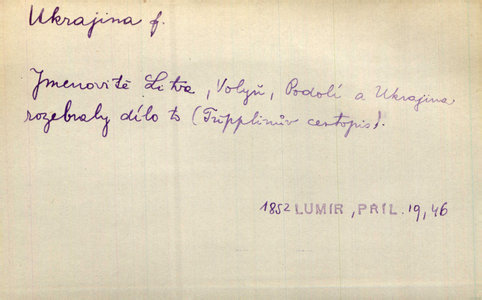 Ukrajina f.
Jmenovitě Litva, Volyň, Podolí a Ukrajina
rozebraly dílo to (Tripplinův cestopis).
1852 LUMIR, PRIL. 19, 46